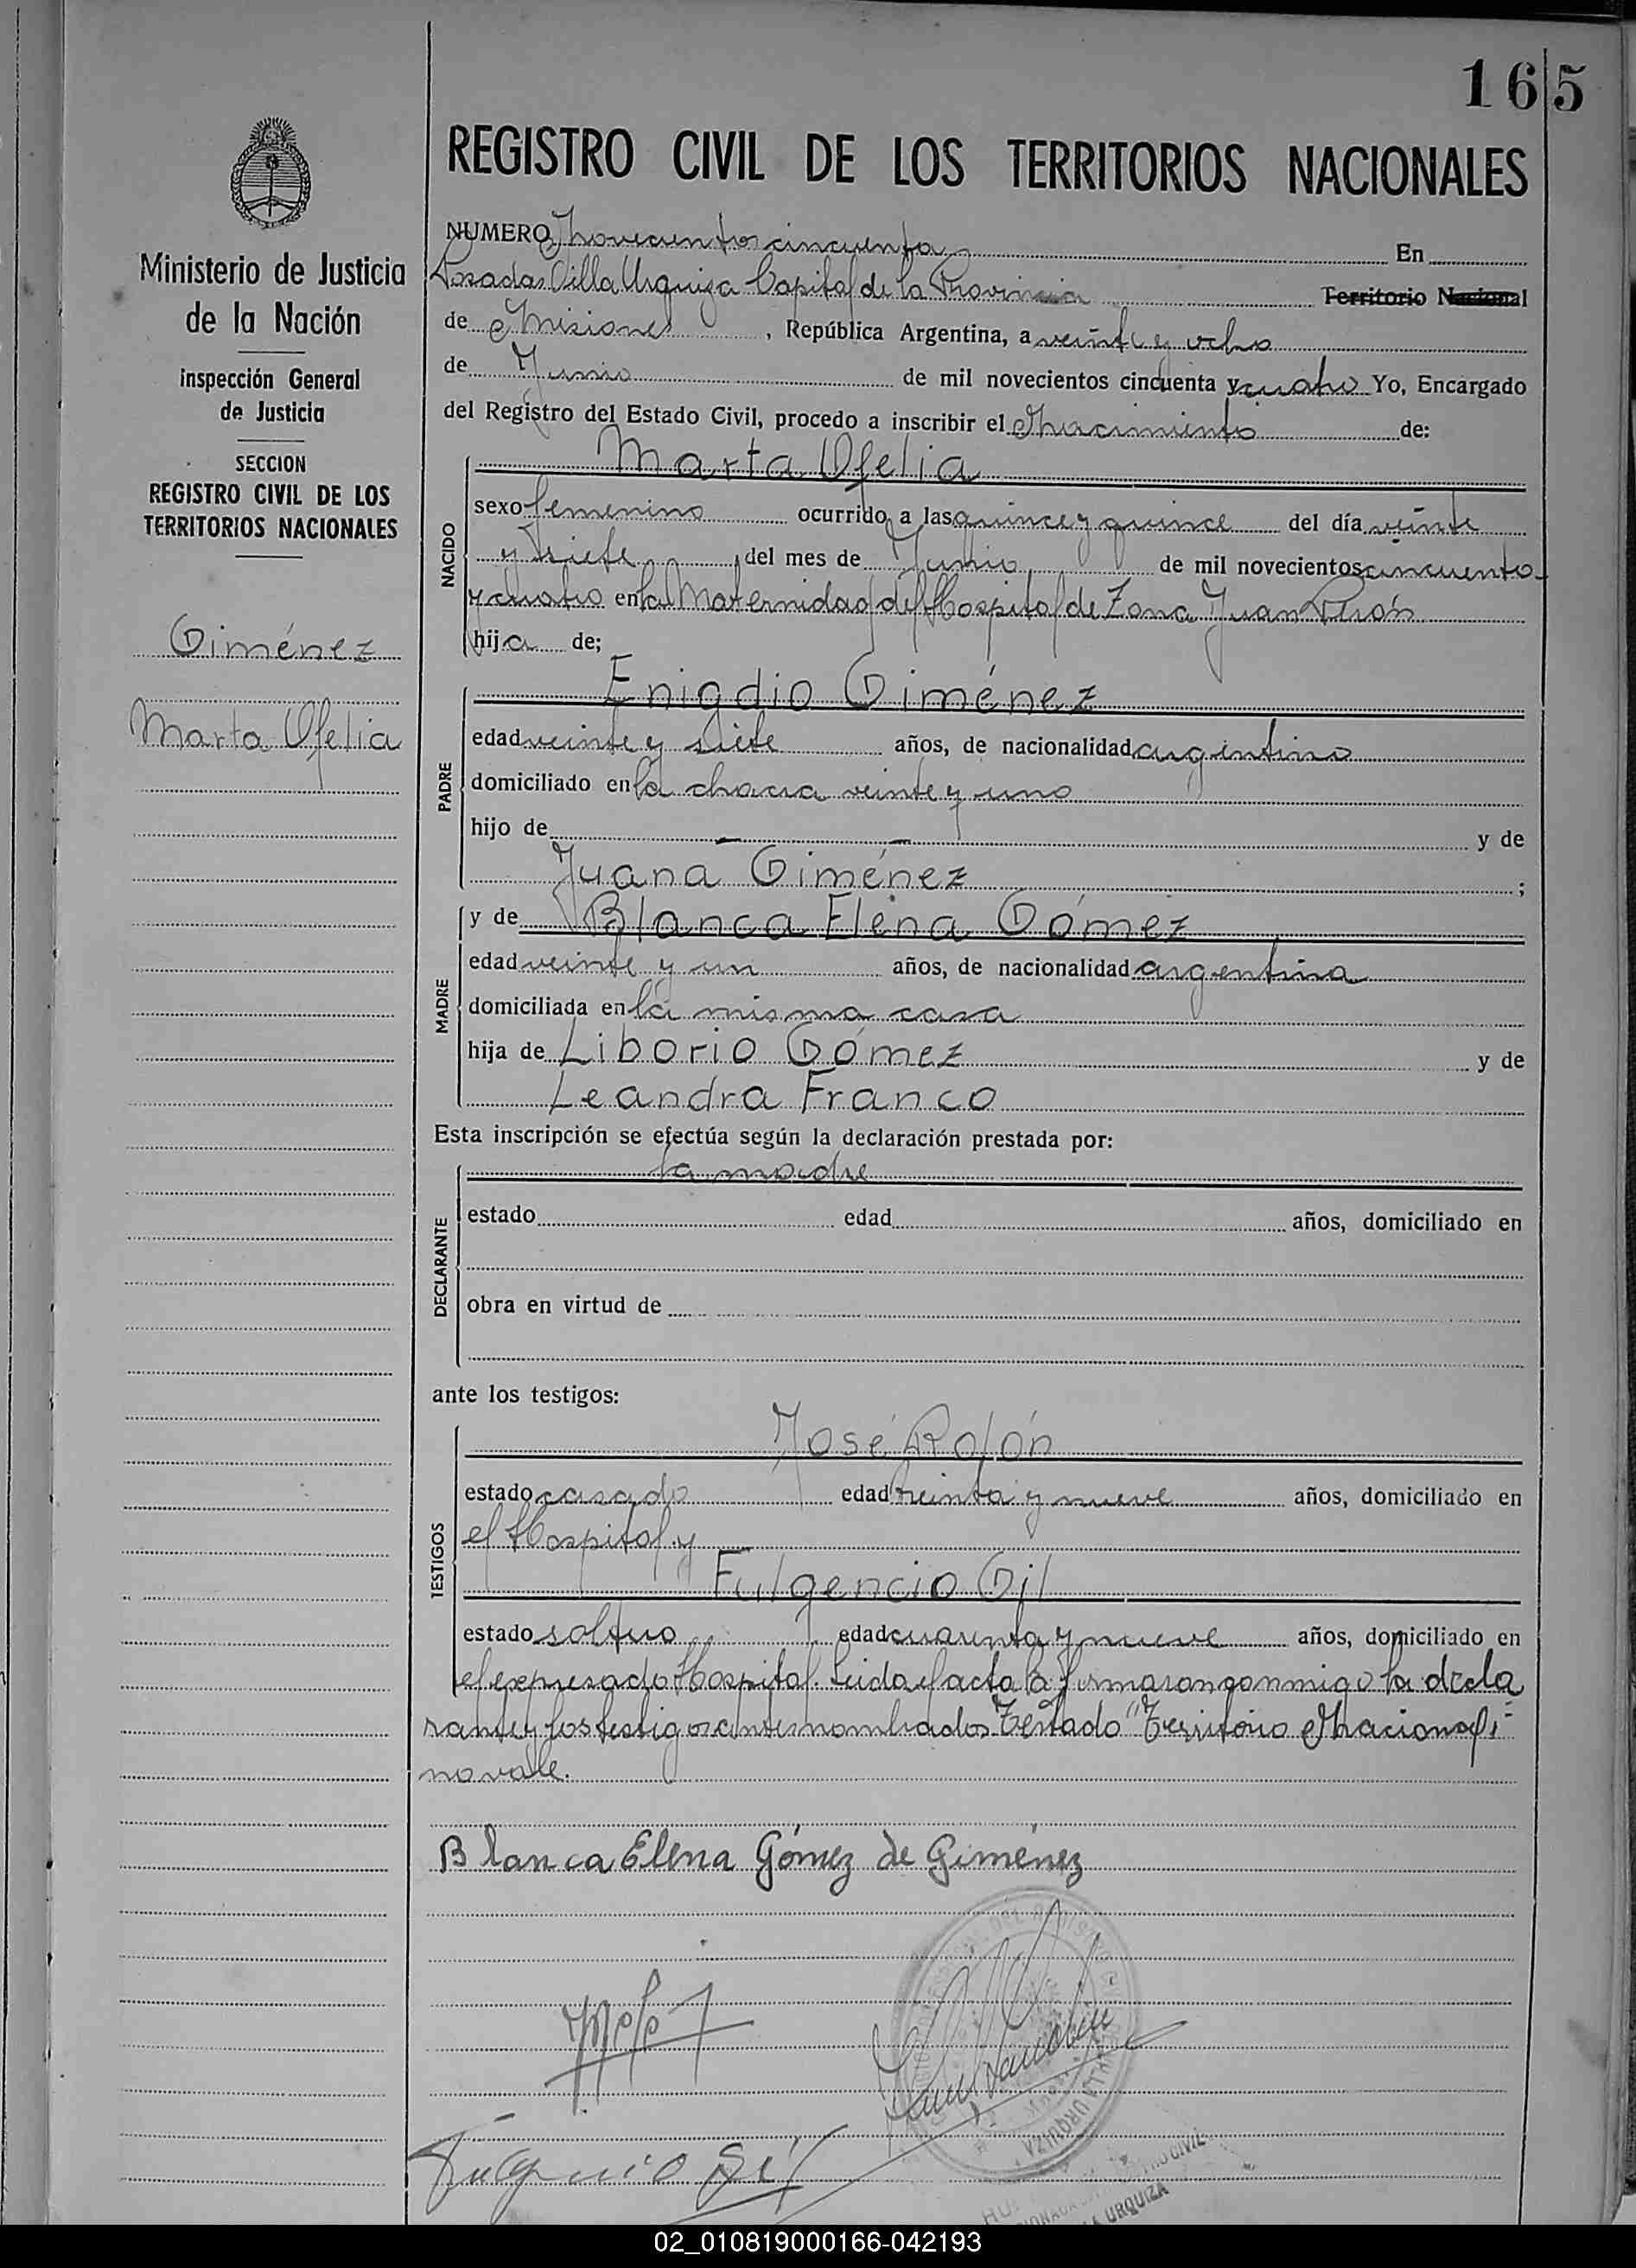 165
REGISTRO CIVIL DE LOS TERRITORIOS NACIONALES
Ministerio de Justicia
de la Nación
Inspección General
de Justicia
SECCION
REGISTRO CIVIL DE LOS
TERRITORIOS NACIONALES
Giménez
Marta Ofelia
NUMERO Novecientos cincuenta En
Posadas Villa Urquiza Capital de la Provincia Territorio Nacional
de Misiones, República Argentina, a veinte y ocho
de Junio de mil novecientos cincuenta y cuatro Yo, Encargado
del Registro del Estado Civil, procedo a inscribir el Nacimiento de:
NACIDO
Marta Ofelia
sexo femenino ocurrido a las quince y quince del día veinte
y siete del mes de Junio de mil novecientos cincuenta
y cuatro en la Maternidad del Hospital de Zona Juan Perón
hija de;
PADRE
Enigdio Giménez
edad veinte y siete años, de nacionalidad argentino
domiciliado en la chacra veinte y uno
hijo de — — y de
Juana Giménez ;
MADRE
y de Blanca Elena Gómez
edad veinte y un años, de nacionalidad argentina
domiciliada en la misma casa
hija de Liborio Gómez y de
Leandra Franco
Esta inscripción se efectúa según la declaración prestada por:
DECLARANTE
la madre
estado edad años, domiciliado en
obra en virtud de
ante los testigos:
TESTIGOS
José Rolón
estado casado edad treinta y nueve años, domiciliado en
el Hospital y
Fulgencio Gil
estado soltero edad cuarenta y nueve años, domiciliado en
el expresado Hospital. Leida el acta la firmaron conmigo la decla
rante y los testigos antes nombrados. Testado "Territorio Nacional":
no vale.
Blanca Elena Gómez de Giménez
Fulgencio Gil
URQUIZA
URQUIZA
02_010819000166-042193